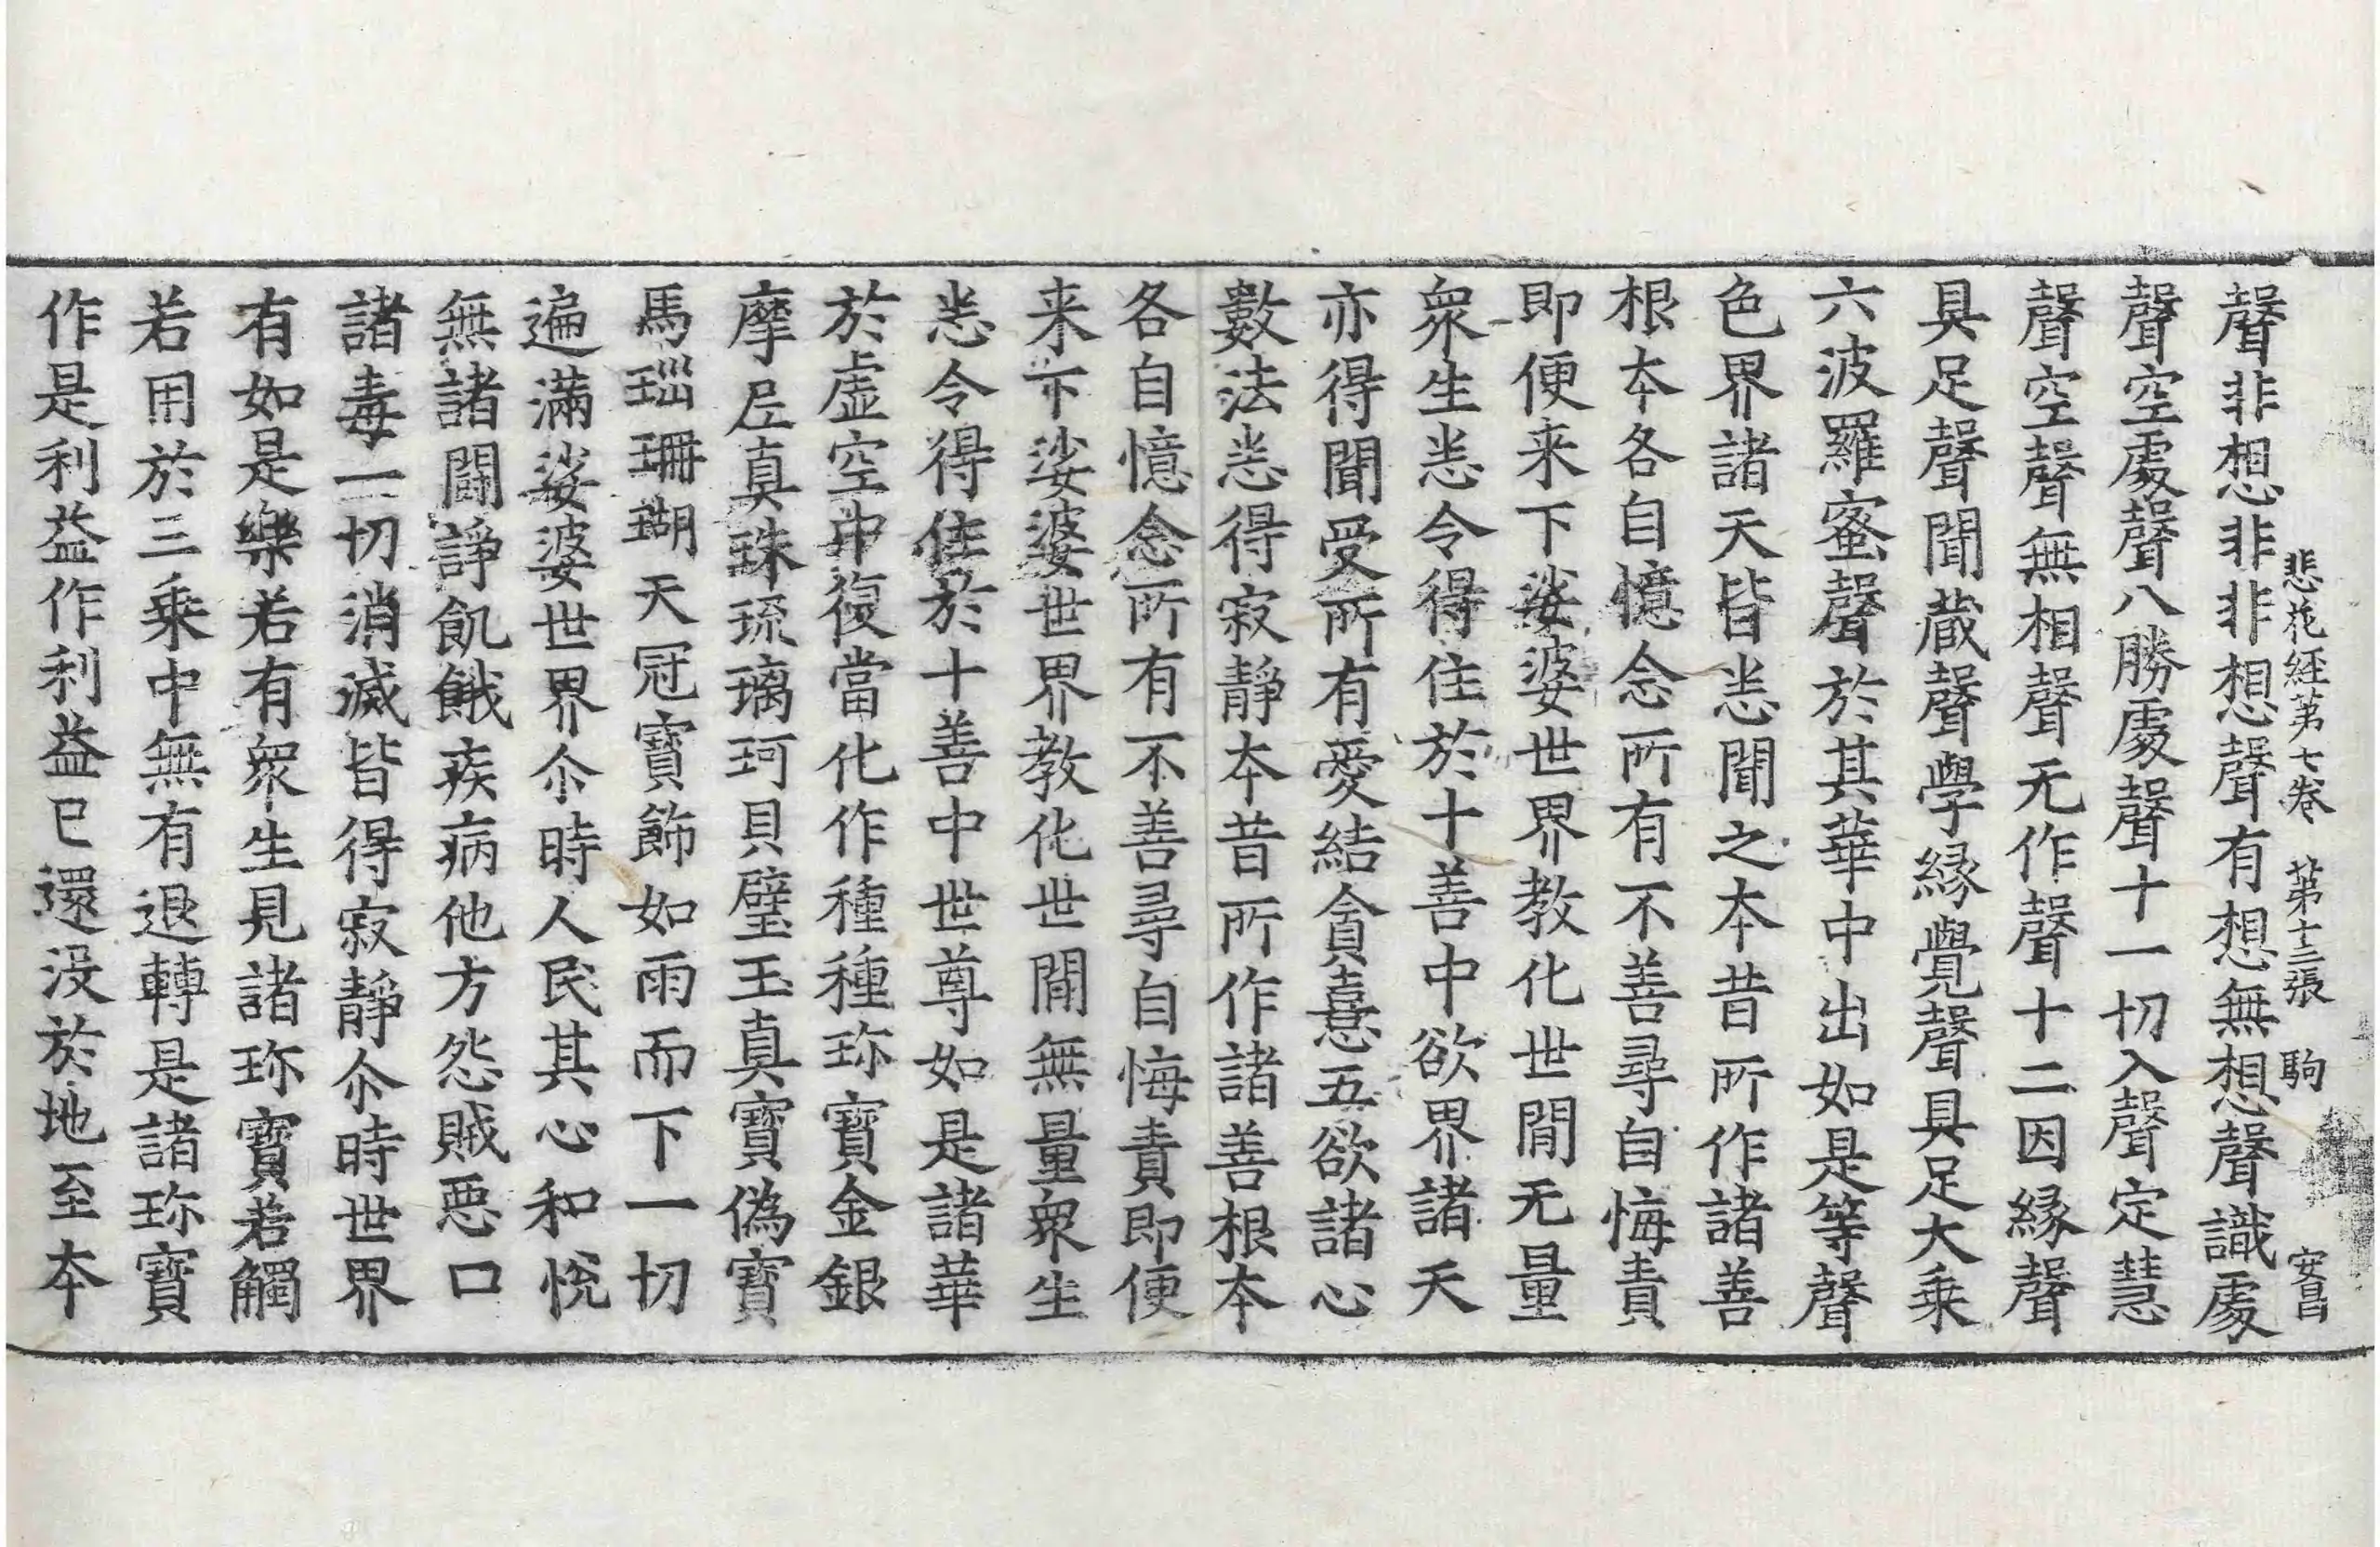 悲花経第七卷 第十三張 駒 安昌
聲非想非非想聲有想無想聲識處
聲空處聲八勝處聲十一切入聲定慧
聲空聲無相聲无作聲十二因緣聲
具足聲聞蔵聲學緣覺聲具足大乗
六波羅蜜聲於其華中出如是等聲
色界諸天皆悉聞之本昔所作諸善
根本各自憶念所有不善尋自悔責
即便来下娑婆世界教化世閒无量
衆生悉令得住於十善中欲界諸天
亦得聞受所有愛結貪憙五欲諸心
數法悉得寂靜本昔所作諸善根本
各自憶念所有不善尋自悔責即便
来下娑婆世界教化世閒無量衆生
悉令得住於十善中世尊如是諸華
於虚空中復當化作種種珎寶金銀
摩尼真珠琉璃珂貝璧玉真寶偽寶
馬瑙珊瑚天冠寶飾如雨而下一切
遍滿娑婆世界尒時人民其心和悅
無諸鬪諍飢餓疾病他方怨賊惡口
諸毒一切消滅皆得寂靜尒時世界
有如是樂若有衆生見諸珎寶若觸
若用於三乗中無有退轉是諸珎寶
作是利益作利益已還沒於地至本